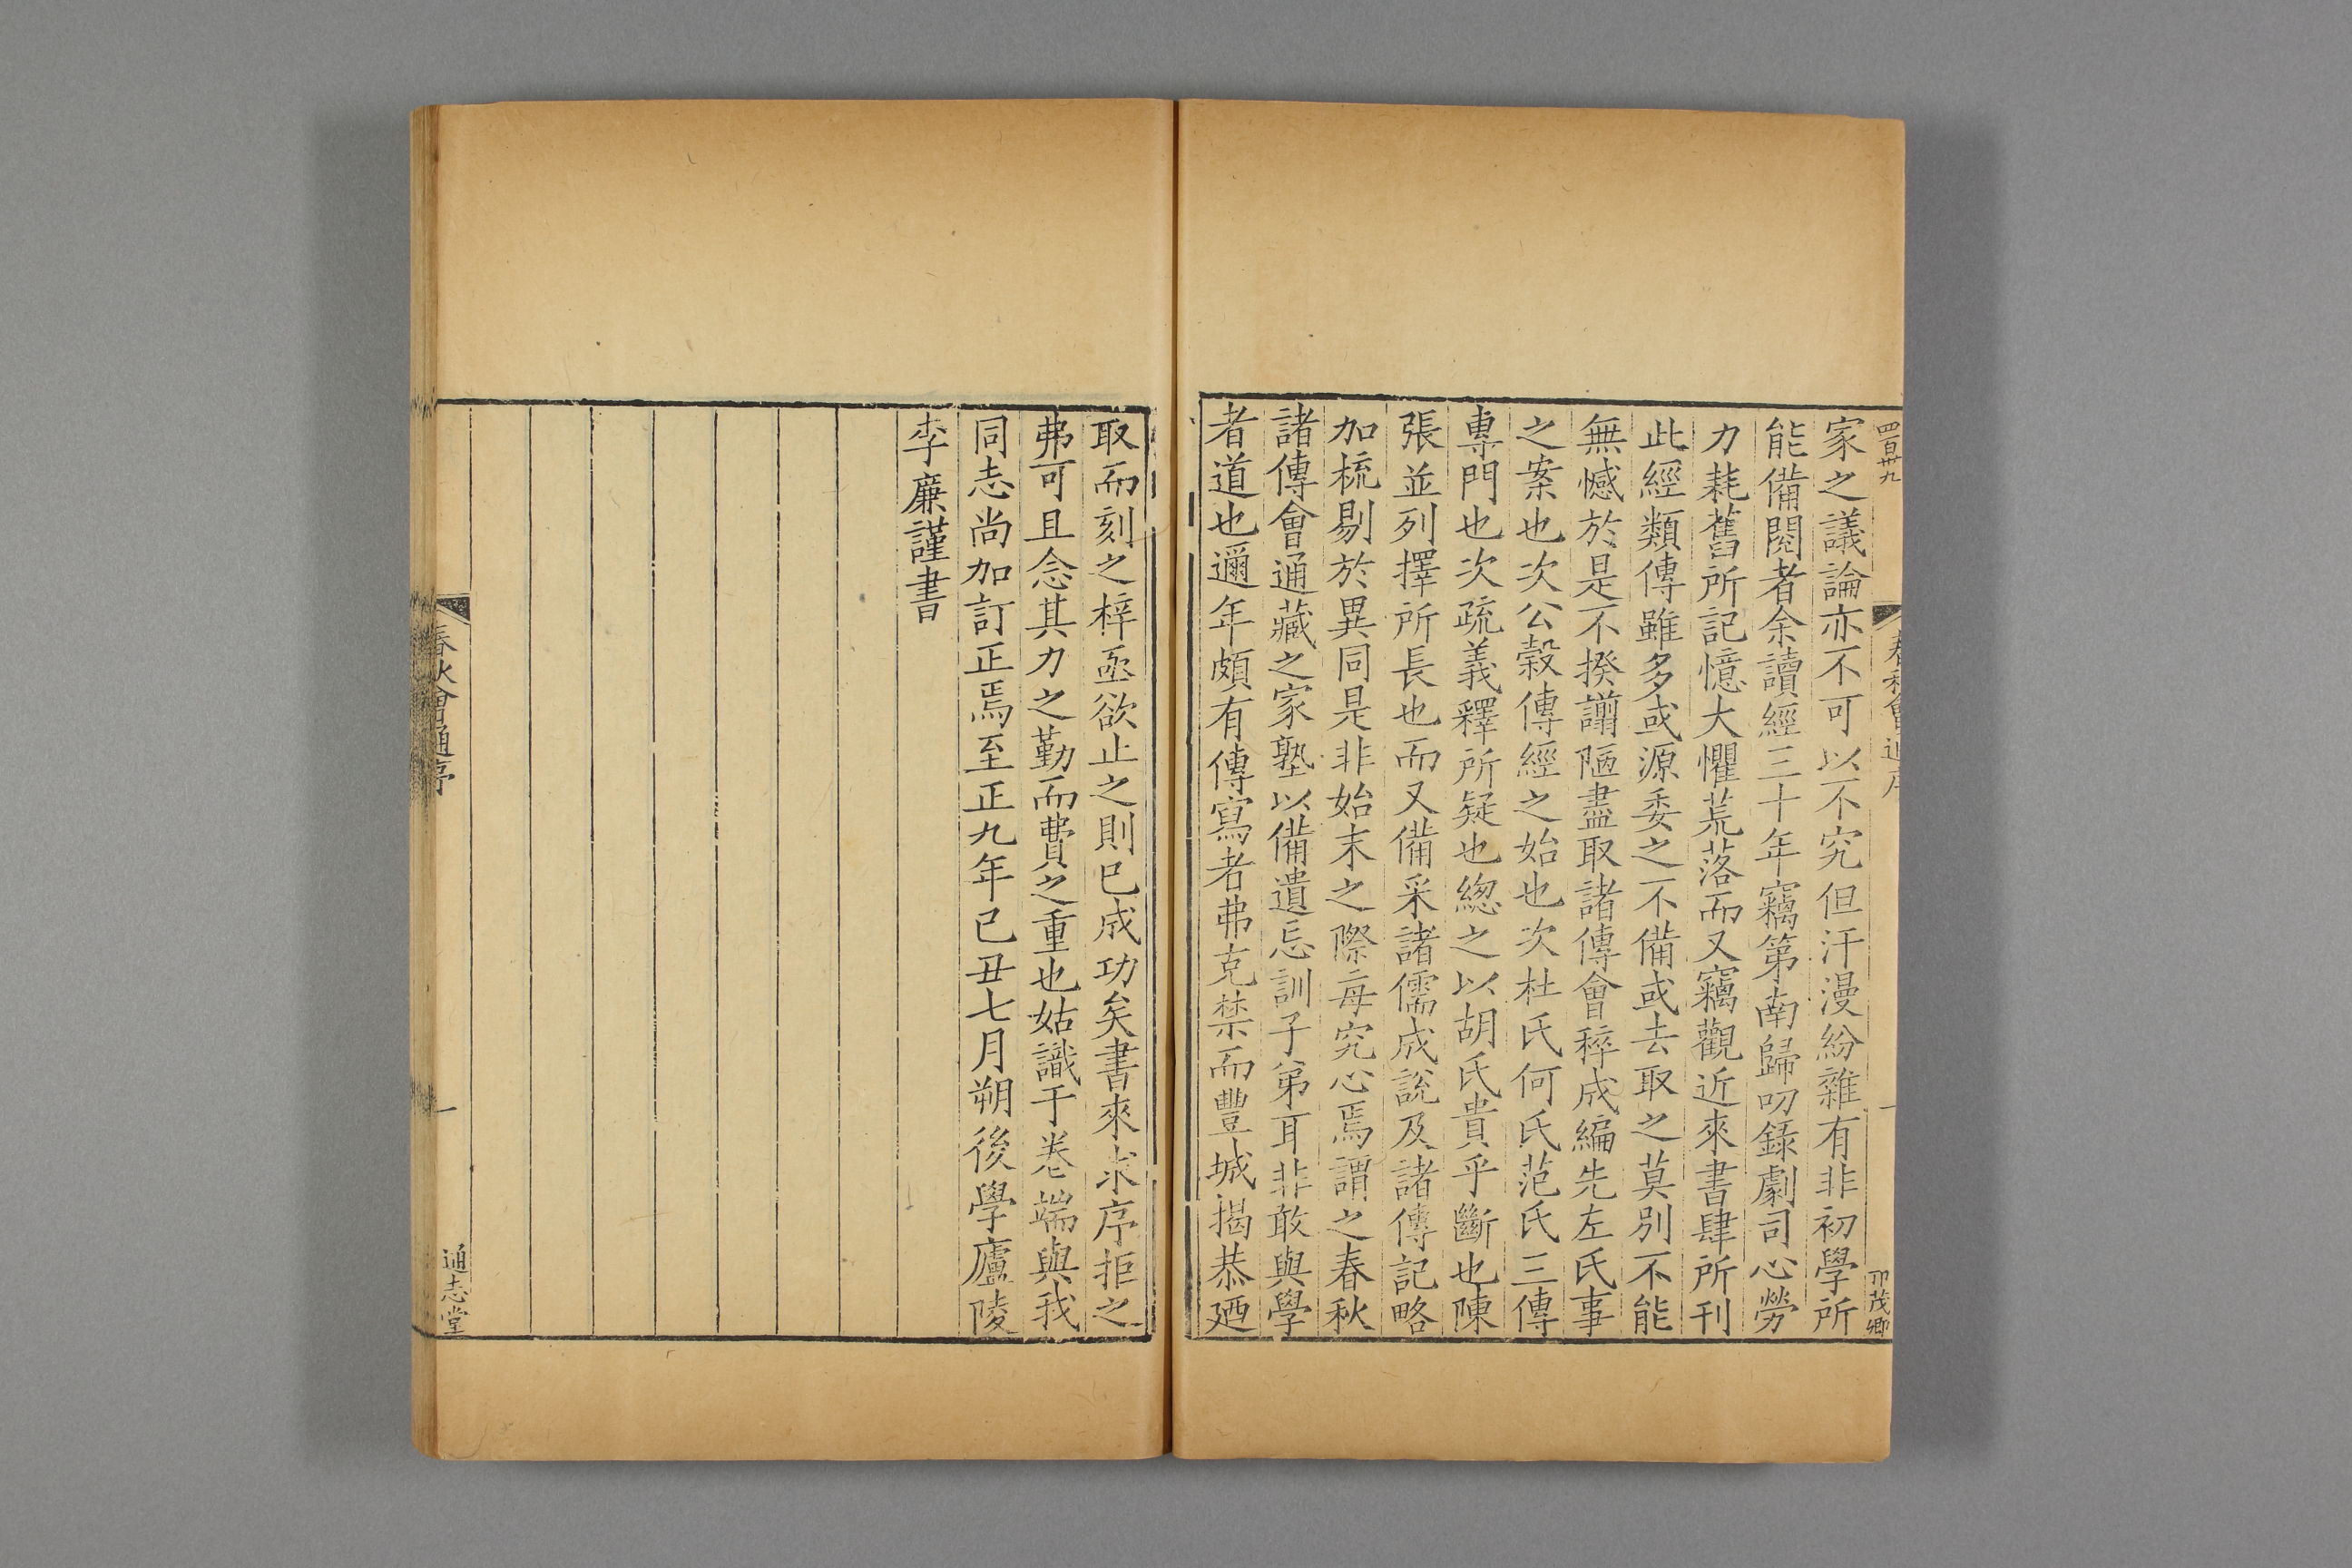 四百卌九
春秋會通序
一
茂卿
家之議論亦不可以不究但汗漫紛雜有非初學所
能備閱者余讀經三十年竊第南歸叨錄劇司心勞
力耗舊所記憶大懼荒落而又竊觀近來書肆所刊
此經類傳雖多或源委之不備或去取之莫別不能
無憾於是不揆謭陋盡取諸傳會稡成編先左氏事
之案也次公穀傳經之始也次杜氏何氏范氏三傳
專門也次疏義釋所疑也緫之以胡氏貴乎斷也陳
張並列擇所長也而又備采諸儒成說及諸傳記略
加梳剔於異同是非始末之際每究心焉謂之春秋
諸傳會通藏之家塾以備遺忘訓子弟耳非敢與學
者道也邇年頗有傳寫者弗克禁而豐城揭恭廼
取而刻之梓亟欲止之則已成功矣書來求序拒之
弗可且念其力之勤而費之重也姑識于卷端與我
同志尚加訂正焉至正九年己丑七月朔後學廬陵
李廉謹書
春秋會通序
一
通志堂